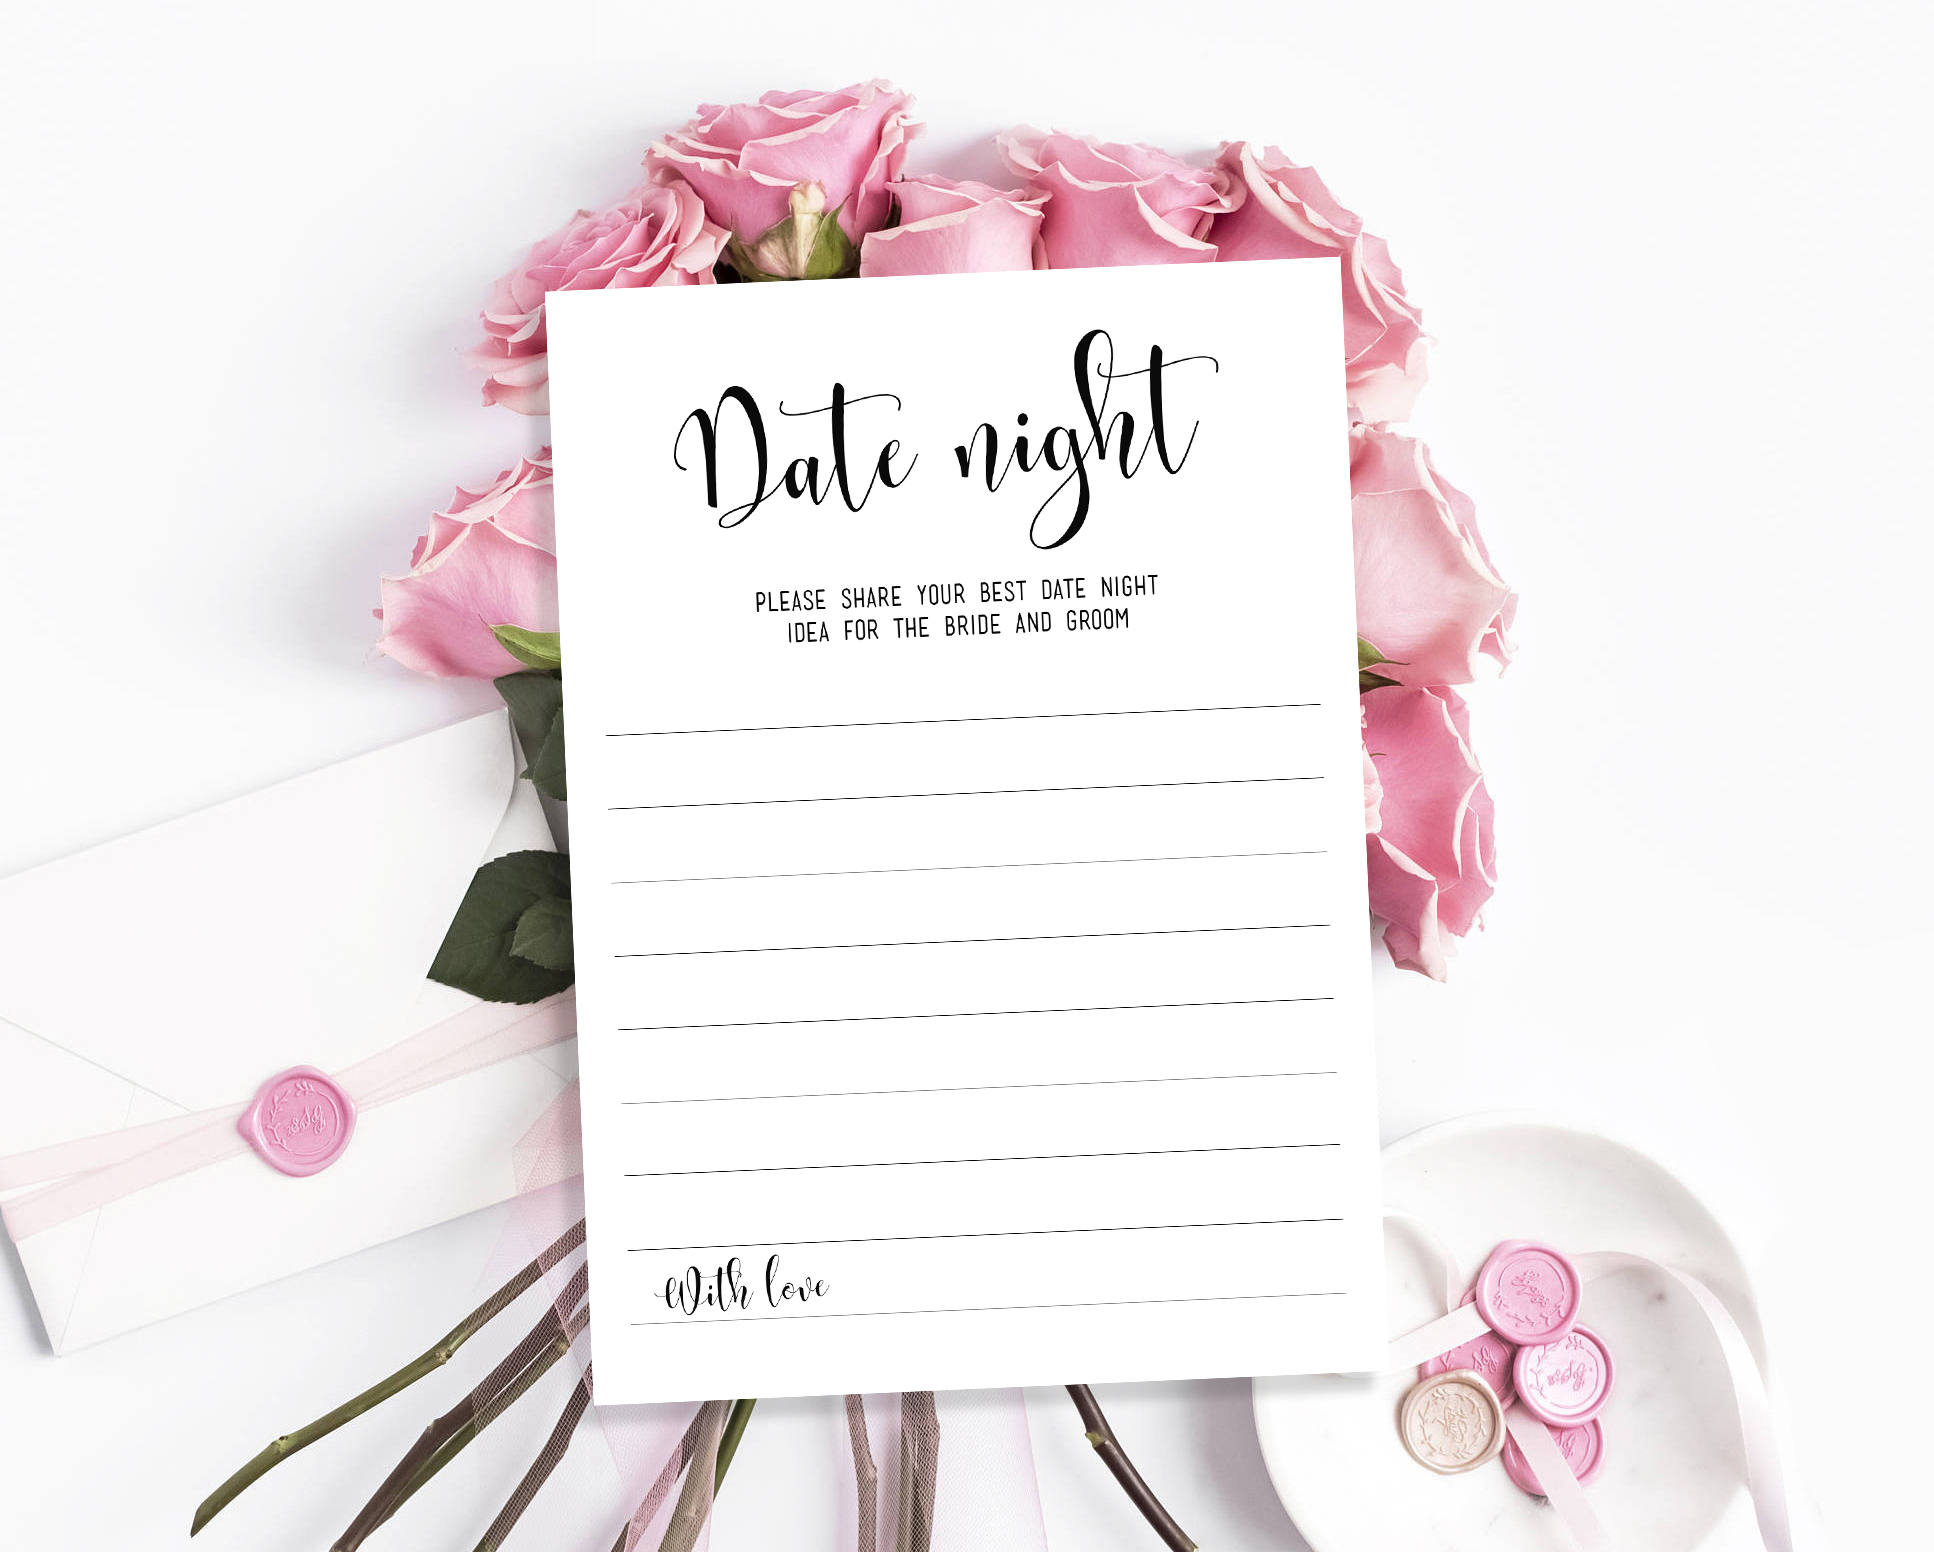 Date night
PLEASE SHARE YOUR BEST DATE NIGHT
IDEA FOR THE BRIDE AND GROOM
With love